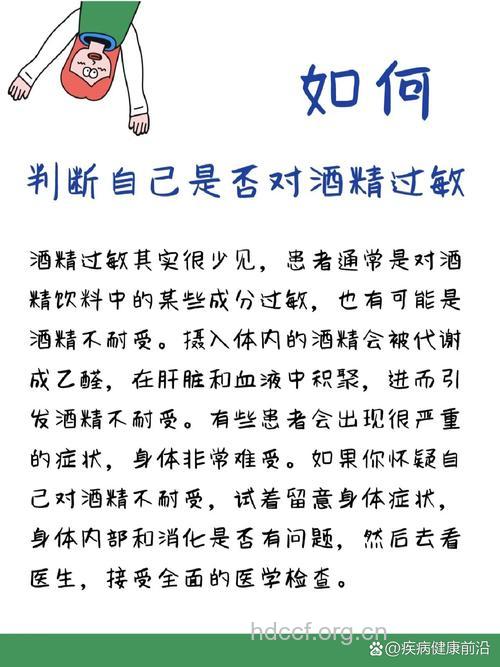 如何
判断自己是否对酒精过敏
酒精过敏其实很少见，患者通常是对酒
精饮料中的某些成分过敏，也有可能是
酒精不耐受。摄入体内的酒精会被代谢
成乙醛，在肝脏和血液中积聚，进而引
发酒精不耐受。有些患者会出现很严重
的症状，身体非常难受。如果你怀疑自
己对酒精不耐受，试着留意身体症状，
身体内部和消化是否有问题，然后去看
医生，接受全面的医学检查。
hdccf.org.cn
@疾病健康前沿